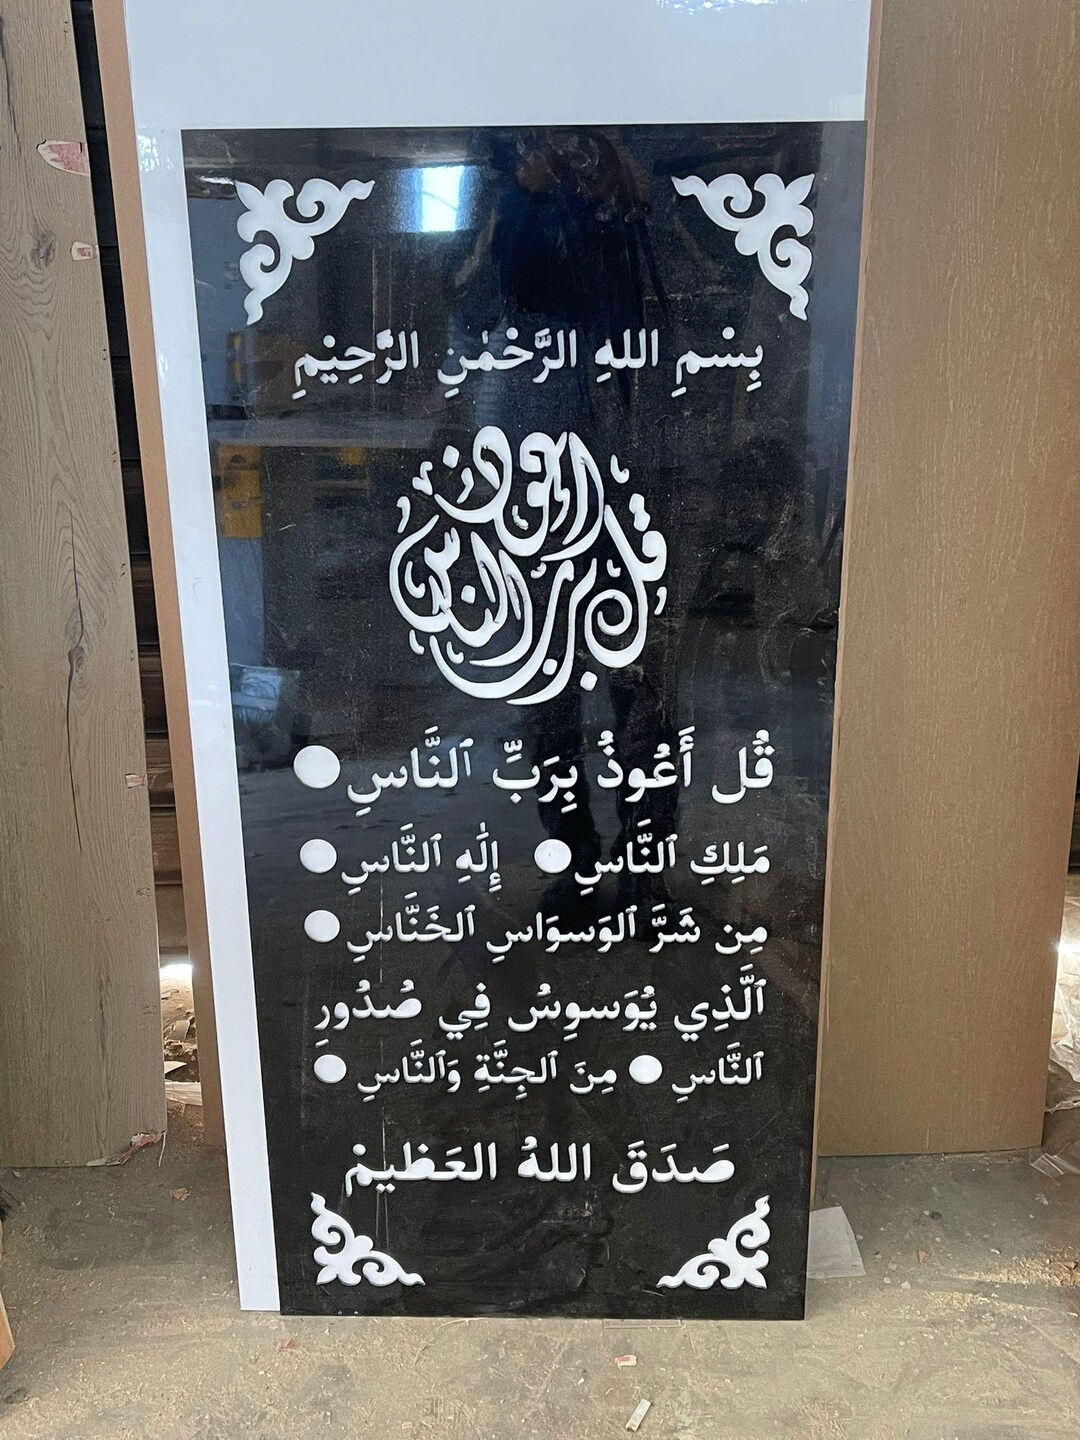 بِسْمِ اللهِ الرَّحْمٰنِ الرَّحِيْمِ
قل اعوذ برب الناس
قُل أَعُوذُ بِرَبِّ ٱلنَّاسِ
مَلِكِ ٱلنَّاسِ إِلَٰهِ ٱلنَّاسِ
مِن شَرَّ ٱلوَسوَاسِ ٱلخَنَّاسِ
ٱلَّذِي يُوَسوِسُ فِي صُدُورِ
ٱلنَّاسِ مِنَ ٱلجِنَّةِ وَٱلنَّاسِ
صَدَقَ اللهُ العَظيمْ